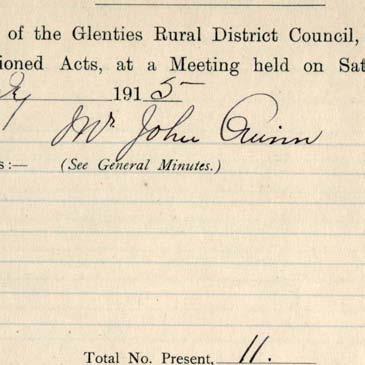 of the Glenties Rural District Council,
ioned Acts, at a Meeting held on Sat
1915
Mr John Quinn
s:— (See General Minutes.)
Total No. Present, 11.